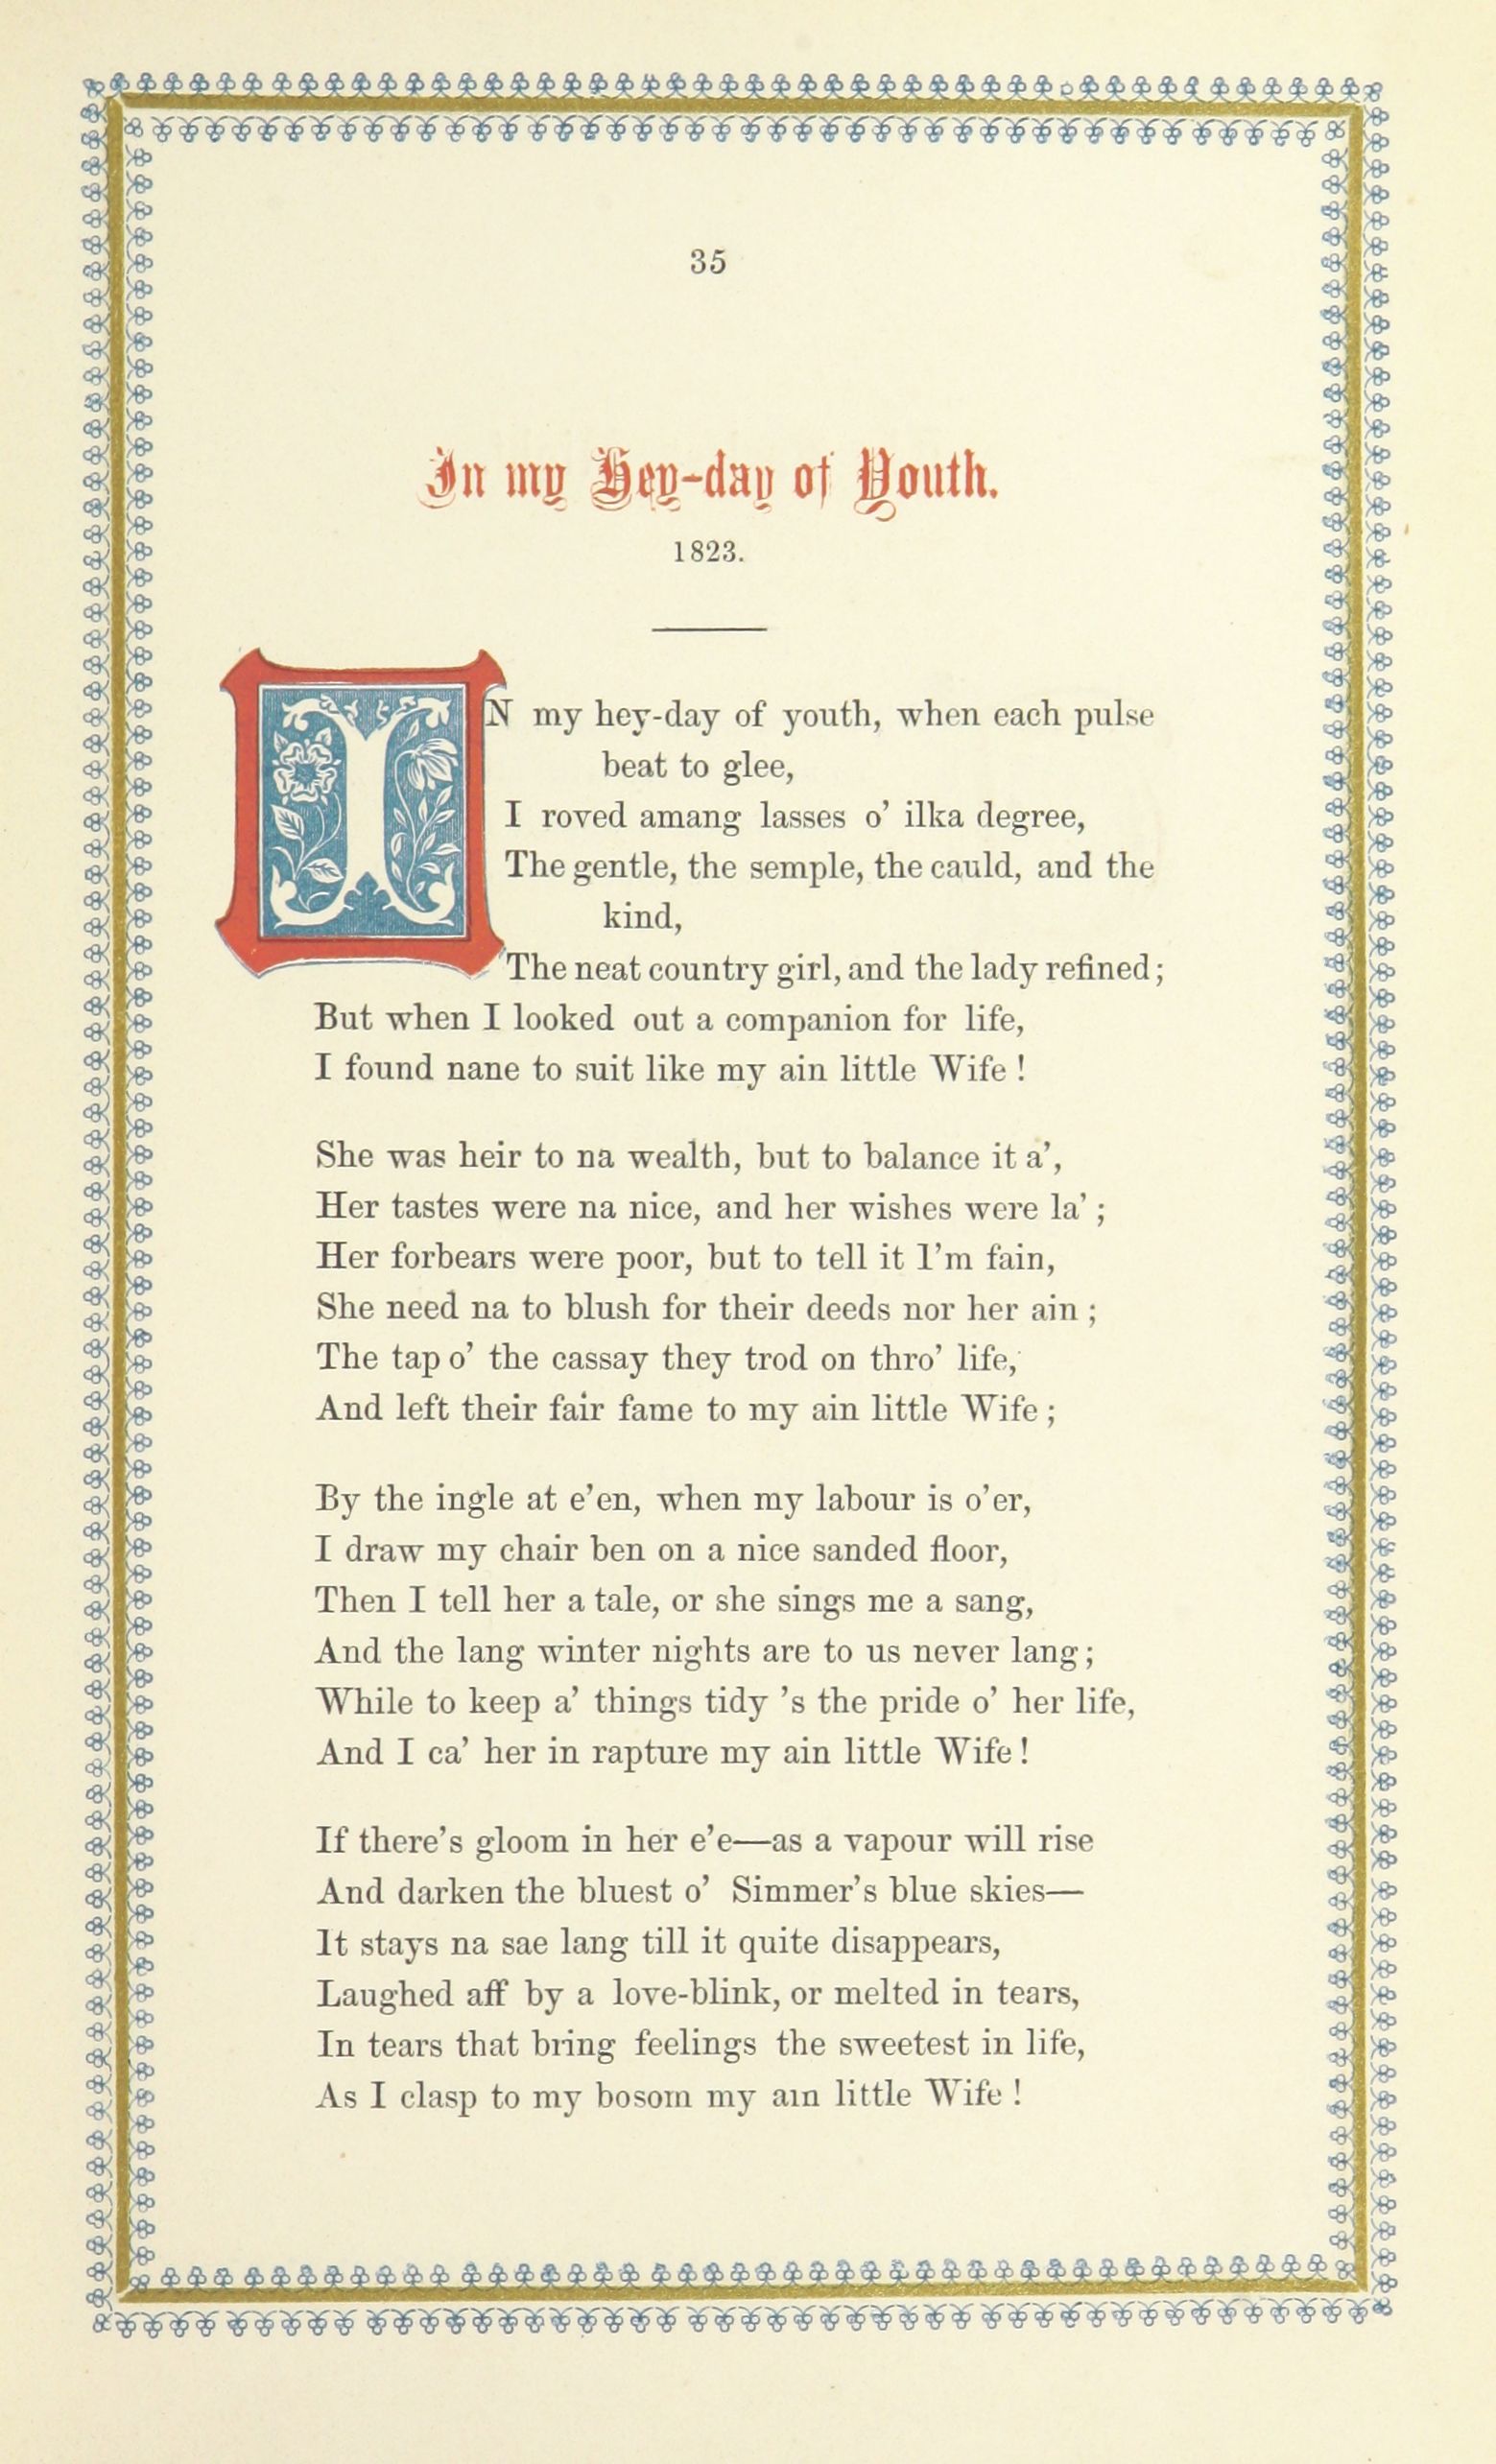 35
In my Hey-day of Youth.
1823.
IN my hey-day of youth, when each pulse
beat to glee,
I roved amang lasses o' ilka degree,
The gentle, the semple, the cauld, and the
kind,
The neat country girl, and the lady refined;
But when I looked out a companion for life,
I found nane to suit like my ain little Wife!
She was heir to na wealth, but to balance it a',
Her tastes were na nice, and her wishes were la';
Her forbears were poor, but to tell it I'm fain,
She need na to blush for their deeds nor her ain;
The tap o' the cassay they trod on thro' life,
And left their fair fame to my ain little Wife;
By the ingle at e'en, when my labour is o'er,
I draw my chair ben on a nice sanded floor,
Then I tell her a tale, or she sings me a sang,
And the lang winter nights are to us never lang;
While to keep a' things tidy 's the pride o' her life,
And I ca' her in rapture my ain little Wife!
If there's gloom in her e'e—as a vapour will rise
And darken the bluest o' Simmer's blue skies—
It stays na sae lang till it quite disappears,
Laughed aff by a love-blink, or melted in tears,
In tears that bring feelings the sweetest in life,
As I clasp to my bosom my ain little Wife!